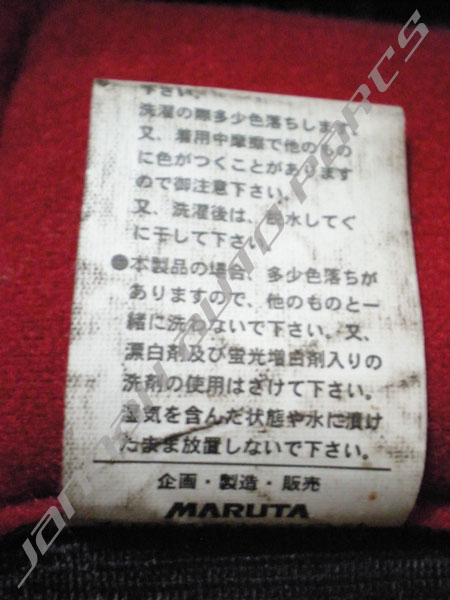 下さい。
洗濯の際多少色落ちします
又、着用中摩擦で他のもの
に色がつくことがあります
ので御注意下さい。
又、洗濯後は、脱水してぐ
に干して下さい
●本製品の場合、多少色落ちが
ありますので、他のものと一
緒に洗わないで下さい。又、
漂白剤及び蛍光増白剤入りの
洗剤の使用はさけて下さい。
湿気を含んだ状態や水に漬け
たまま放置しないで下さい。
企画・製造・販売
MARUTA
JAPAN AUTO PARCS